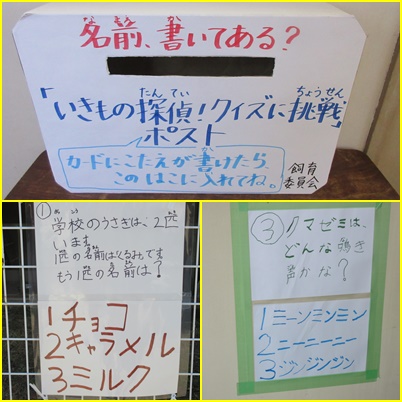 名前、書いてある？
たん てい
ちょうせん
「いきもの探偵！クイズに挑戦」
ポスト
カードにこたえが書けたら、
このはこに入れてね。
飼育
委員会
①
学校のうさぎは、2匹
います。
1匹の名前はくるみです。
もう1匹の名前は？
1チョコ
2キャラメル
3ミルク
③クマゼミは、
どんな鳴き
声かな？
1ミーンミンミン
2ニーニーニー
3ジンジンジン